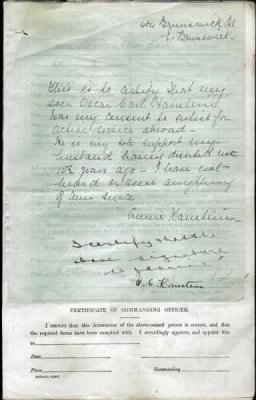 Brunswick Rd
E. Brunswick.
This is to certify that my
son Oscar Carl Hanstein
has my consent to enlist for
active service abroad –
He is my sole support my
husband having deserted me
years ago – I have not
heard or seen anything
of him since
Hanstein
I certify that the
above signature
is genuine
O. C. Hanstein
CERTIFICATE OF COMMANDING OFFICER.
I CERTIFY that this Attestation of the above-named person is correct, and that
the required forms have been complied with. I accordingly approve, and appoint him
to
Date
Place